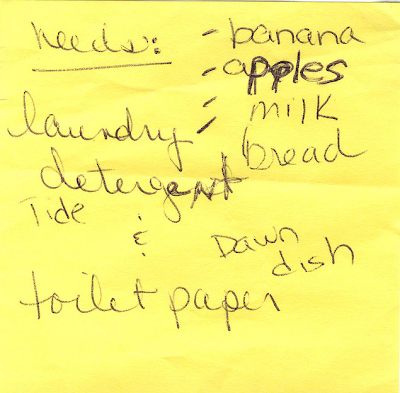 needs:
- banana
- apples
- milk
bread
laundry
detergent
Tide
&
Dawn
dish
toilet paper